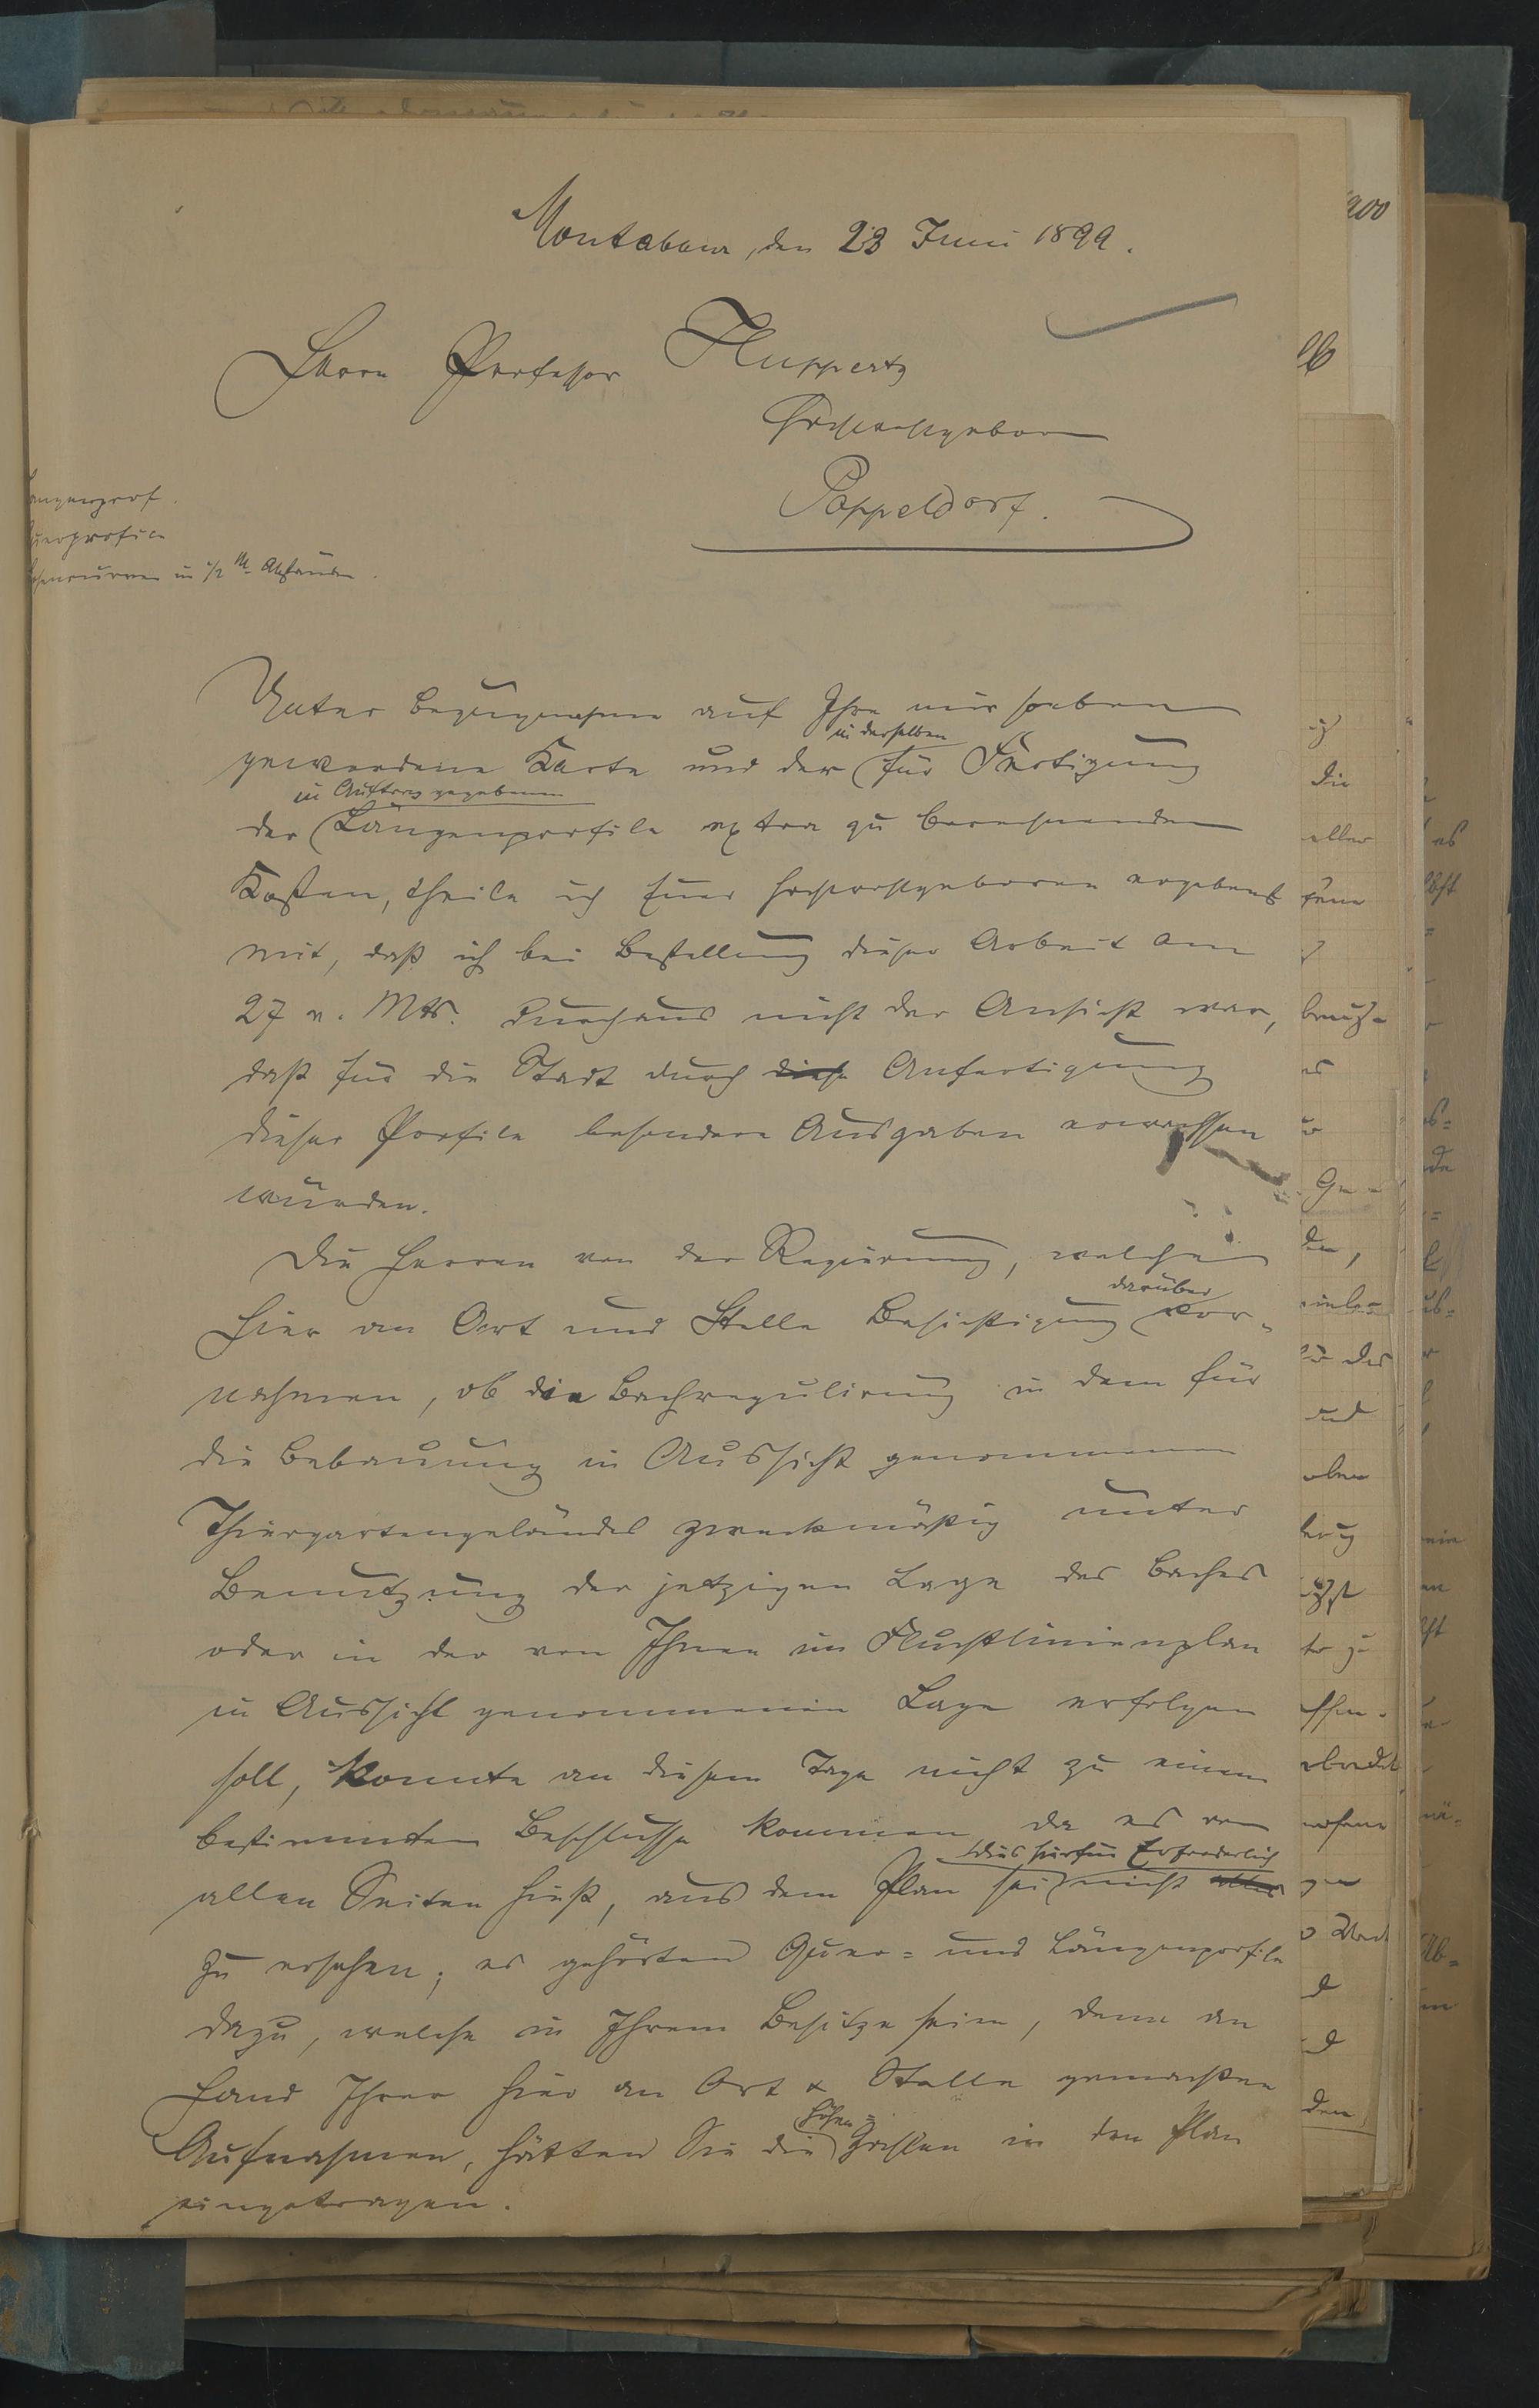 Montabaur, den 23 Juni 1899.
Herrn Professor Huppertz
Hochwohlgeboren
Poppelsdorf.
Längenprof.
Querprofile
Höhencurven in 1/2 M. Abständen.
Unter Bezugnahme auf Ihre mir soeben
in derselben
gewordene Karte und der für Fertigung
in Auftrag gegebenen
der Längenprofile extra zu berechnenden
Kosten, theile ich Euer Hochwohlgeboren ergebenst
mit, daß ich bei Bestellung dieser Arbeit am
27 v. Mts. durchaus nicht der Ansicht war,
daß für die Stadt durch diese Anfertigung
dieser Profile besondere Ausgaben erwachsen
würden.
Die Herren von der Regierung, welche
darüber
hier an Ort und Stelle Besichtigung vor-
nahmen, ob die Bachregulirung in dem für
die Bebauung in Aussicht genommenen
Thiergartengelände zweckmäßig unter
Benutzung der jetzigen Lage des Baches
oder in der von Ihnen im Fluchtlinienplan
in Aussicht genommenen Lage erfolgen
soll, konnte an diesem Tage nicht zu einem
bestimmten Beschlusse kommen, da es von
das hierfür Erforderlich
allen Seiten hieß, aus dem Plan sei nicht alles
zu ersehen; es gehörten Quer= und Längenprofile
dazu, welche in Ihrem Besitze seien, denn an
Hand Ihrer hier an Ort & Stelle gemachten
Höhen=
Aufnahmen, hätten Sie die Zahlen in den Plan
eingetragen.